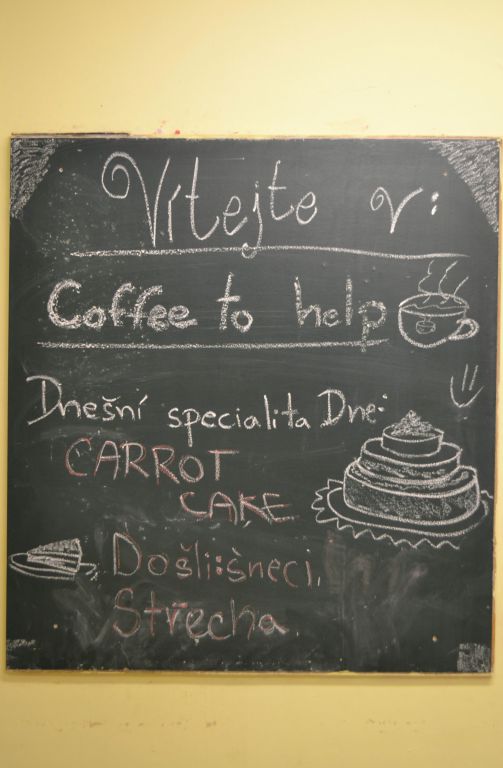 Vítejte v:
Coffee to help
Dnešní specialita Dne:
CARROT
CAKE
Došli:šneci,
Střecha